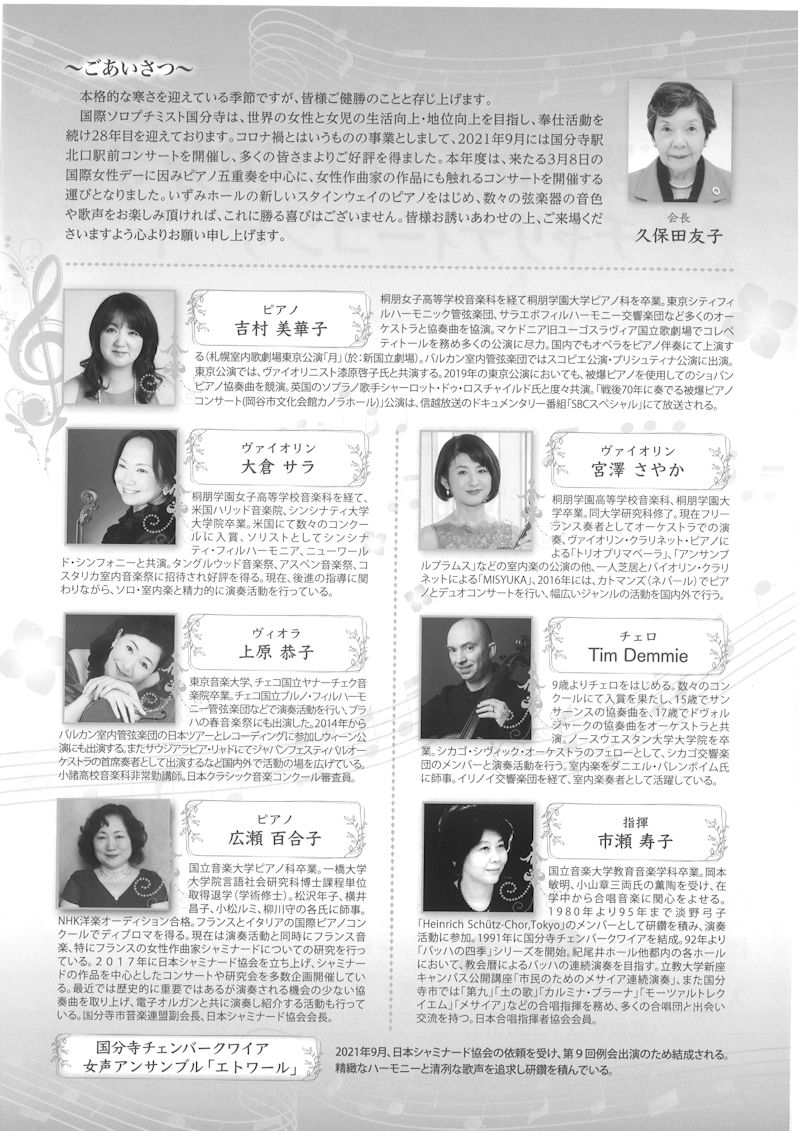 ～ごあいさつ～
本格的な寒さを迎えている季節ですが、皆様ご健勝のことと存じ上げます。
国際ソロプチミスト国分寺は、世界の女性と女児の生活向上・地位向上を目指し、奉仕活動を
続け28年目を迎えております。コロナ禍とはいうものの事業としまして、2021年9月には国分寺駅
北口駅前コンサートを開催し、多くの皆さまよりご好評を得ました。本年度は、来たる3月8日の
国際女性デーに因みピアノ五重奏を中心に、女性作曲家の作品にも触れるコンサートを開催する
運びとなりました。いずみホールの新しいスタインウェイのピアノをはじめ、数々の弦楽器の音色
や歌声をお楽しみ頂ければ、これに勝る喜びはございません。皆様お誘いあわせの上、ご来場くだ
さいますよう心よりお願い申し上げます。
会長
久保田友子
ピアノ
吉村 美華子
桐朋女子高等学校音楽科を経て桐朋学園大学ピアノ科を卒業。東京シティフィ
ルハーモニック管弦楽団、サラエボフィルハーモニー交響楽団など多くのオー
ケストラと協奏曲を協演。マケドニア旧ユーゴスラヴィア国立歌劇場でコレペ
ティトールを務め多くの公演に尽力。国内でもオペラをピアノ伴奏にて上演す
る（札幌室内歌劇場東京公演「月」（於：新国立劇場）。バルカン室内管弦楽団ではスコピエ公演・プリシュティナ公演に出演。
東京公演では、ヴァイオリニスト漆原啓子氏と共演する。2019年の東京公演においても、被爆ピアノを使用してのショパン
ピアノ協奏曲を競演。英国のソプラノ歌手シャーロット・ドゥ・ロスチャイルド氏と度々共演。「戦後70年に奏でる被爆ピアノ
コンサート（岡谷市文化会館カノラホール）」公演は、信越放送のドキュメンタリー番組「SBCスペシャル」にて放送される。
ヴァイオリン
大倉 サラ
桐朋学園女子高等学校音楽科を経て、
米国ハリッド音楽院、シンシナティ大学
大学院卒業。米国にて数々のコンクー
ルに入賞、ソリストとしてシンシナ
ティ・フィルハーモニア、ニューワール
ド・シンフォニーと共演。タングルウッド音楽祭、アスペン音楽祭、コ
スタリカ室内音楽祭に招待され好評を得る。現在、後進の指導に関
わりながら、ソロ・室内楽と精力的に演奏活動を行っている。
ヴァイオリン
宮澤 さやか
桐朋学園高等学校音楽科、桐朋学園大
学卒業。同大学研究科修了。現在フリー
ランス奏者としてオーケストラでの演
奏、ヴァイオリン・クラリネット・ピアノに
よる「トリオプリマベーラ」、「アンサンブ
ルプラムス」などの室内楽の公演の他、一人芝居とバイオリン・クラリ
ネットによる「MISYUKA」、2016年には、カトマンズ（ネパール）でピア
ノとデュオコンサートを行い、幅広いジャンルの活動を国内外で行う。
ヴィオラ
上原 恭子
東京音楽大学、チェコ国立ヤナーチェク音
楽院卒業。チェコ国立ブルノ・フィルハーモ
ニー管弦楽団などで演奏活動を行い、プラ
ハの春音楽祭にも出演した。2014年から
バルカン室内管弦楽団の日本ツアーとレコーディングに参加しウィーン公
演にも出演する。またサウジアラビア・リャドにてジャパンフェスティバルオー
ケストラの首席奏者として出演するなど国内外で活動の場を広げている。
小諸高校音楽科非常勤講師。日本クラシック音楽コンクール審査員。
チェロ
Tim Demmie
9歳よりチェロをはじめる。数々のコン
クールにて入賞を果たし、15歳でサン
サーンスの協奏曲を、17歳でドヴォル
ジャークの協奏曲をオーケストラと共
演。ノースウエスタン大学大学院を卒
業。シカゴ・シヴィック・オーケストラのフェローとして、シカゴ交響楽
団のメンバーと演奏活動を行う。室内楽をダニエル・バレンボイム氏
に師事。イリノイ交響楽団を経て、室内楽奏者として活躍している。
ピアノ
広瀬 百合子
国立音楽大学ピアノ科卒業。一橋大学
大学院言語社会研究科博士課程単位
取得退学（学術修士）。松沢年子、横井
昌子、小松ルミ、柳川守の各氏に師事。
NHK洋楽オーディション合格。フランスとイタリアの国際ピアノコン
クールでディプロマを得る。現在は演奏活動と同時にフランス音
楽、特にフランスの女性作曲家シャミナードについての研究を行っ
ている。２０１７年に日本シャミナード協会を立ち上げ、シャミナー
ドの作品を中心としたコンサートや研究会を多数企画開催してい
る。最近では歴史的に重要ではあるが演奏される機会の少ない協
奏曲を取り上げ、電子オルガンと共に演奏し紹介する活動も行って
いる。国分寺市音楽連盟副会長、日本シャミナード協会会長。
指揮
市瀬 寿子
国立音楽大学教育音楽学科卒業。岡本
敏明、小山章三両氏の薫陶を受け、在
学中から合唱音楽に関心をよせる。
1980年より95年まで淡野弓子
「Heinrich Schütz-Chor,Tokyo」のメンバーとして研鑽を積み、演奏
活動に参加。1991年に国分寺チェンバークワイアを結成。92年より
「バッハの四季」シリーズを開始。紀尾井ホール他都内の各ホール
において、教会暦によるバッハの連続演奏を目指す。立教大学新座
キャンパス公開講座「市民のためのメサイア連続演奏」、また国分
寺市では「第九」「土の歌」「カルミナ・ブラーナ」「モーツァルトレク
イエム」「メサイア」などの合唱指揮を務め、多くの合唱団と出会い
交流を持つ。日本合唱指揮者協会会員。
国分寺チェンバークワイア
女声アンサンブル「エトワール」
2021年9月、日本シャミナード協会の依頼を受け、第９回例会出演のため結成される。
精緻なハーモニーと清冽な歌声を追求し研鑽を積んでいる。